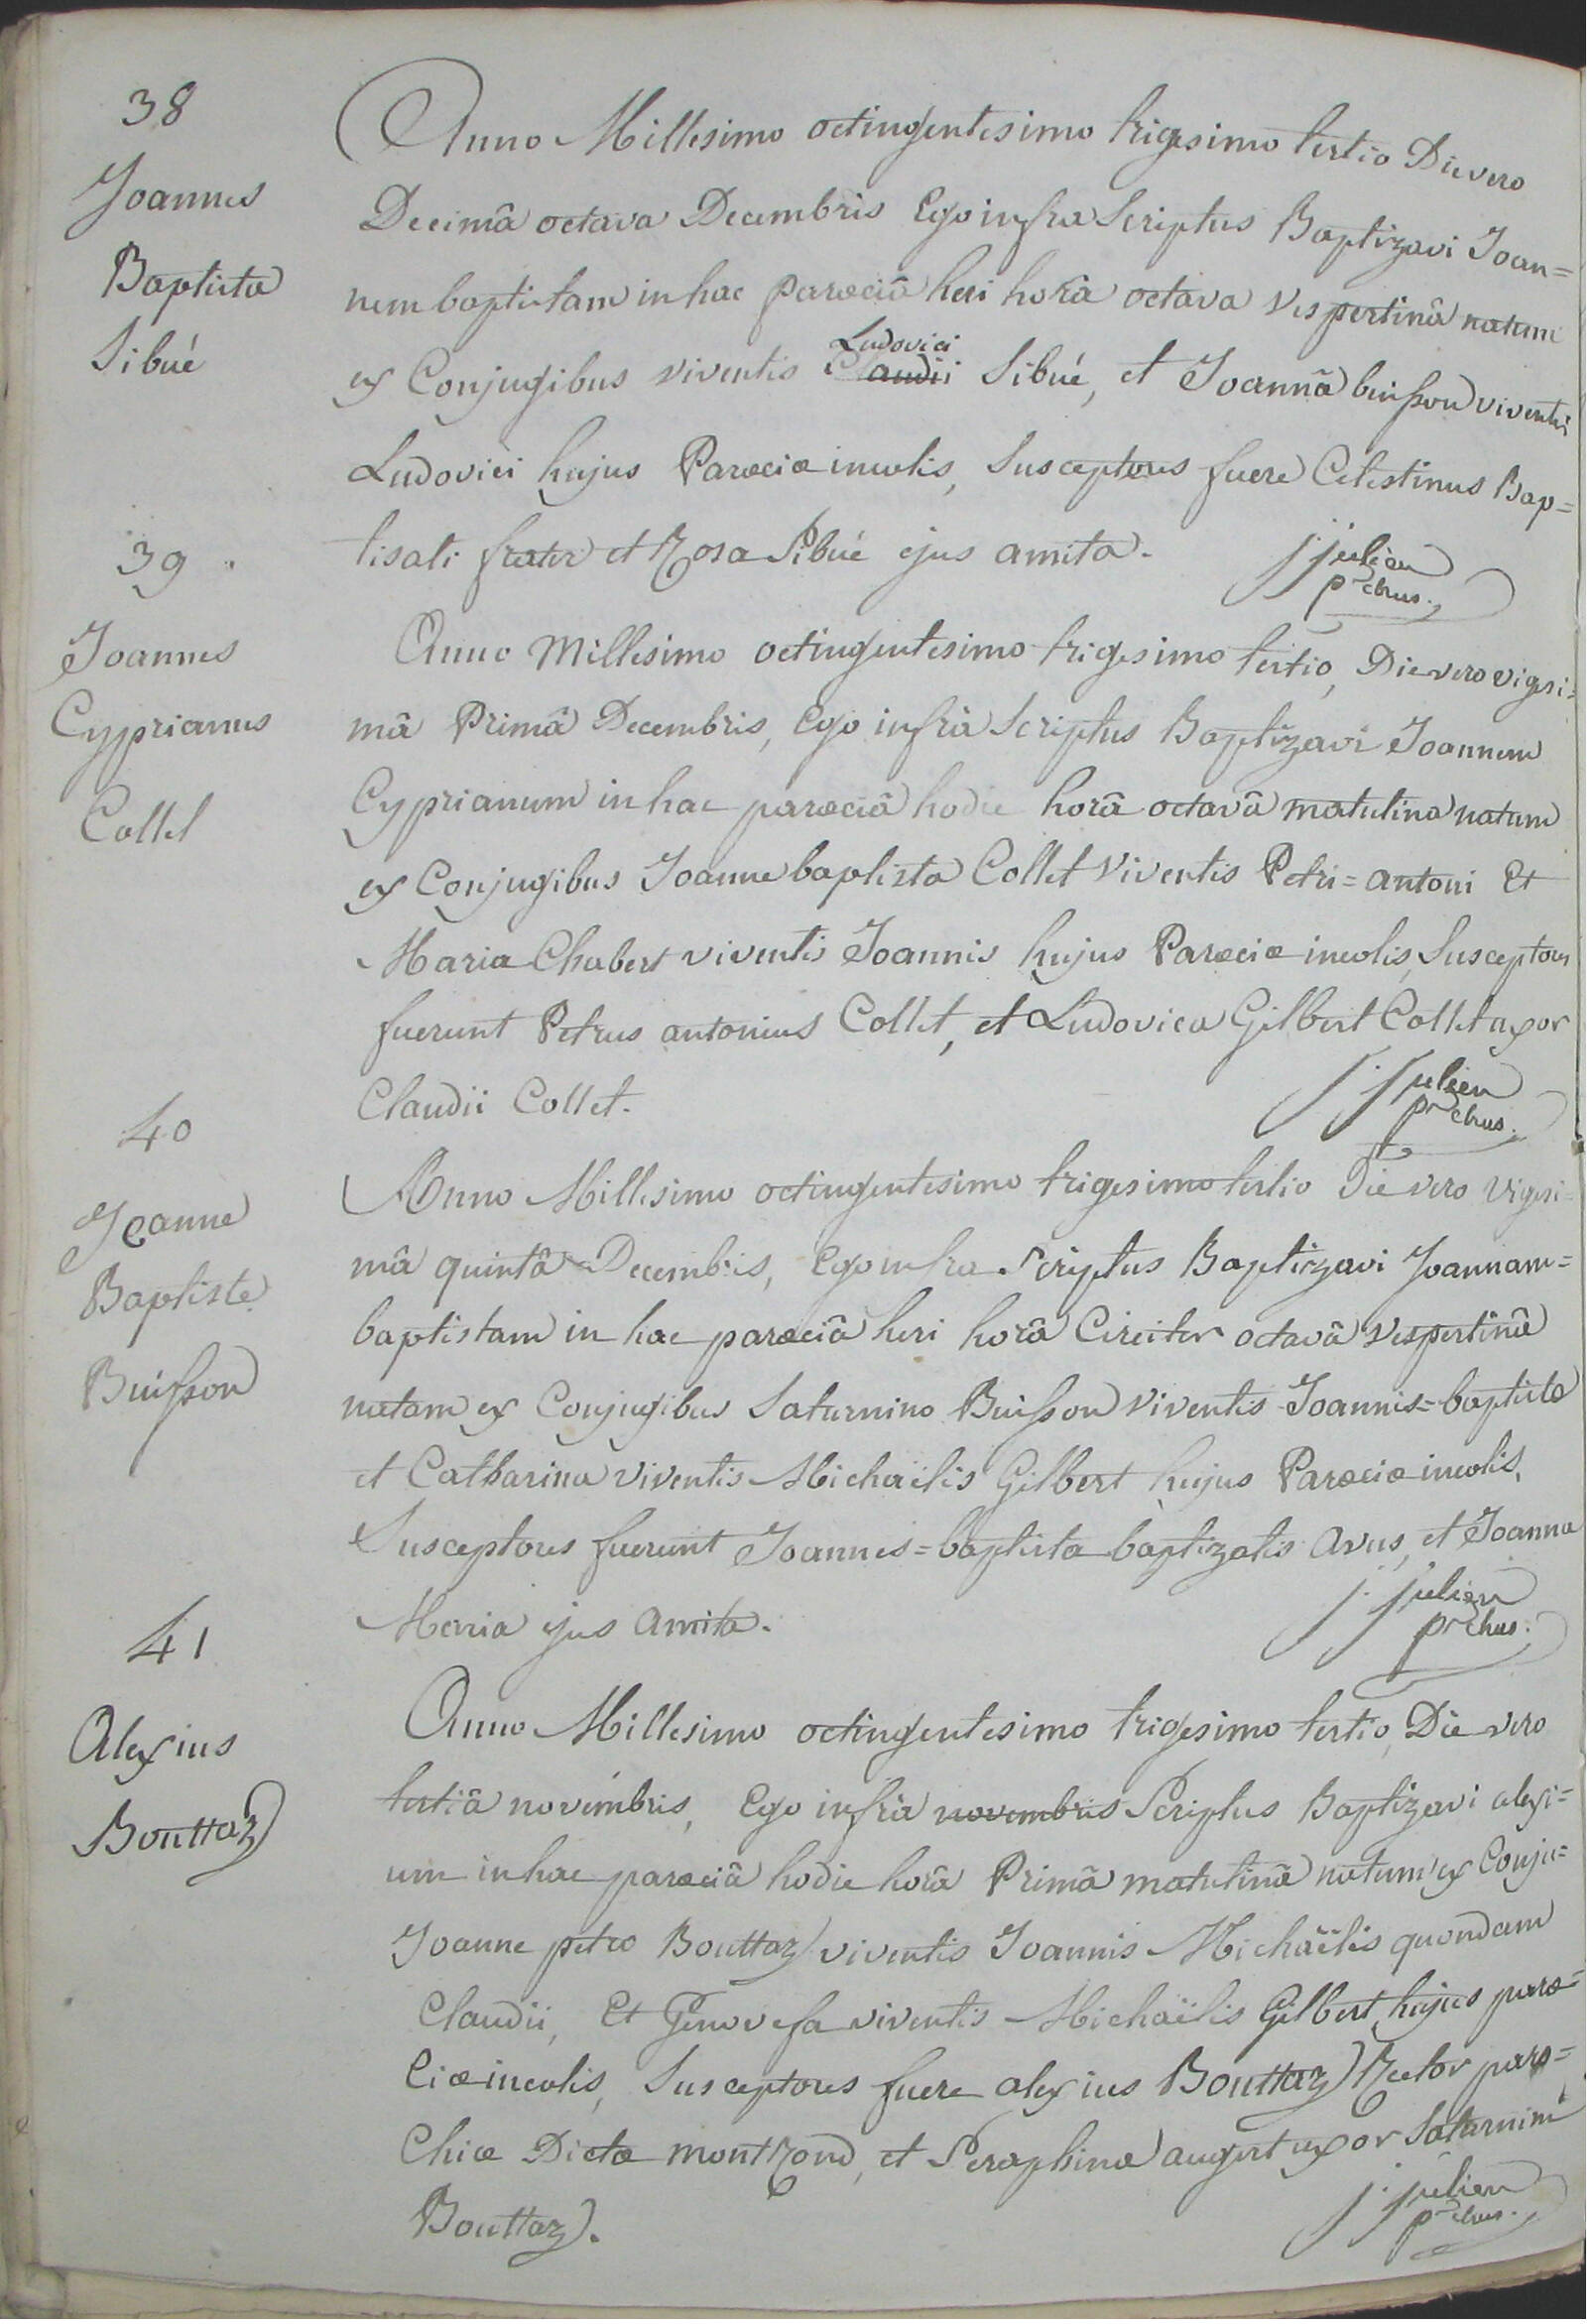 38
Joannes
Baptista
Sibué
Anno Millesimo octingentesimo trigesimo tertio Die vero
Decimâ octava Decembris Ego infra Scriptus Baptizavi Joan=
nem baptistam in hac parœciâ heri horâ octava vespertinâ natum
ex Conjugibus viventis Claudii Ludovici Sibué, et Joannâ buisson viventis
Ludovici hujus Parœciæ incolis, Susceptores fuere Celestinus Bap=
tisati frater et Rosa Sibué ejus amita.
j julien
pr chus.
39
Joannes
Cyprianus
Collet
Anno Millesimo octingentesimo trigesimo tertio, Die vero vigesi=
mâ Primâ Decembris, Ego infrà Scriptus Baptizavi Joannem
Cyprianum in hac parœciâ hodie horâ octavâ matutina natum
ex Conjugibus Joanne baptista Collet viventis Petri=antoni Et
Maria Chabert viventis Joannis hujus Parœciæ incolis, Susceptores
fuerunt Petrus antonius Collet, et Ludovica Gilbert Collet uxor
Claudii Collet.
j. julien
pr chus.
40
Jeanne
Baptiste
Buisson
Anno Millesimo octingentesimo trigesimo tertio Die vero vigesi=
mâ quintâ Decembris, Ego infra Scriptus Baptizavi Joannam=
baptistam in hac parœciâ heri horâ Circiter octavâ vespertinâ
natam ex Conjugibus Saturnino Buisson viventis Joannis=baptista
et Catharina viventis Michaëlis Gilbert hujus Parœciæ incolis,
Susceptores fuerunt Joannes=baptista baptizatis avus, et Joanna
Maria ejus amita.
j. julien
pr chus.
41
Alexius
Bouttaz
Anno Millesimo octingentesimo trigesimo tertio, Die vero
tertiâ novembris, Ego infrà novembris Scriptus Baptizavi alexi=
um in hac parœciâ hodie horâ Primâ matutinâ natum ex Conju=
Joanne petro Bouttaz viventis Joannis Michaëlis quondam
Claudii, Et Genovefa viventis Michaëlis Gilbert hujus parœ=
ciæ incolis, Susceptores fuere alexius Bouttaz Rector paro=
chiæ Dictæ montRond, et Seraphina augert uxor Saturnini
Bouttaz.
j. julien
pr chus.